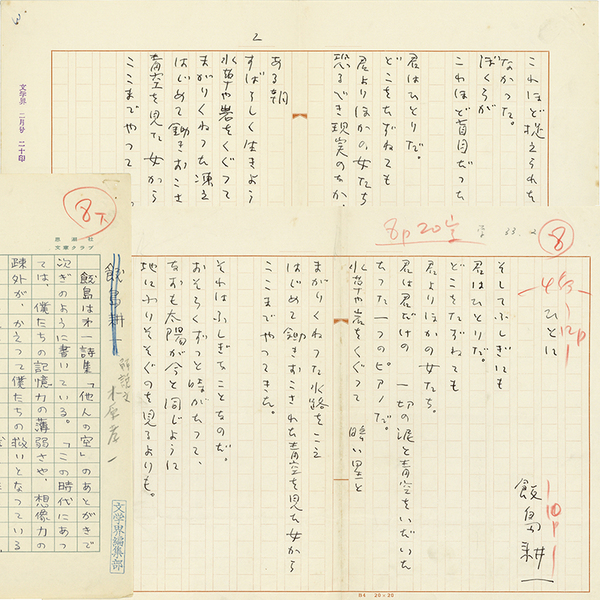 2
これほど
なかった。
ぼくらが
これほど盲目だった
君はひとりだ。
どこをたずねても
君よりほかの女たち
恐るべき現実のなか、
ある朝
すばらしく生きよう
水草や岩をくぐって
まがりくねった
はじめて鋤きおこさ
青空を見た女から
ここまでやって
文学界 二月分 二十印
8p20
33.2
8
ひとに
12p
10p
飯島耕一
そしてふしぎにも
君はひとりだ。
どこをたずねても
君よりほかの女たち。
君は君だけの 一切の涙と青空をいだいた
たった一つのピアノだ。
水草や岩をくぐって 暗い星と
まがりくねった水路をこえ
はじめて鋤きおこされた青空を見た女から
ここまでやってきた。
それはふしぎなことなのだ。
おそらくずっと時がたって、
なおも太陽が今と同じように
地にふりそそぐのを見るよりも。
B4 20×20
8下
飯島耕一
解説文
木原孝一
飯島は才一詩集「他人の空」のあとがきで
次ぎのように書いている。「この時代にあっ
ては、僕たちの記憶力の薄弱さや、想像力の
疎外が、かえって僕たちの救いとなっている
文学界編集部